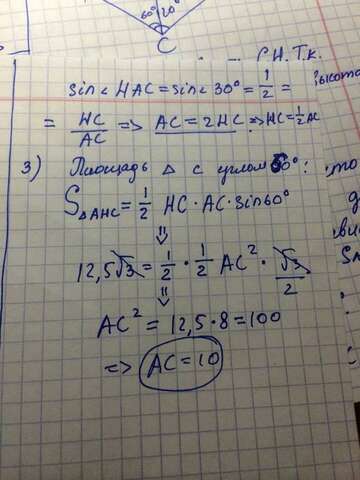 60° 20°
C
sin∠HAC = sin∠30° = 1/2 =
= HC/AC => AC = 2HC => HC = 1/2 AC
3) Площадь Δ с углом 60°:
S△AHC = 1/2 HC · AC · sin60°
⇓
12,5√3 = 1/2 · 1/2 AC² · √3/2
⇓
AC² = 12,5 · 8 = 100
=> AC = 10